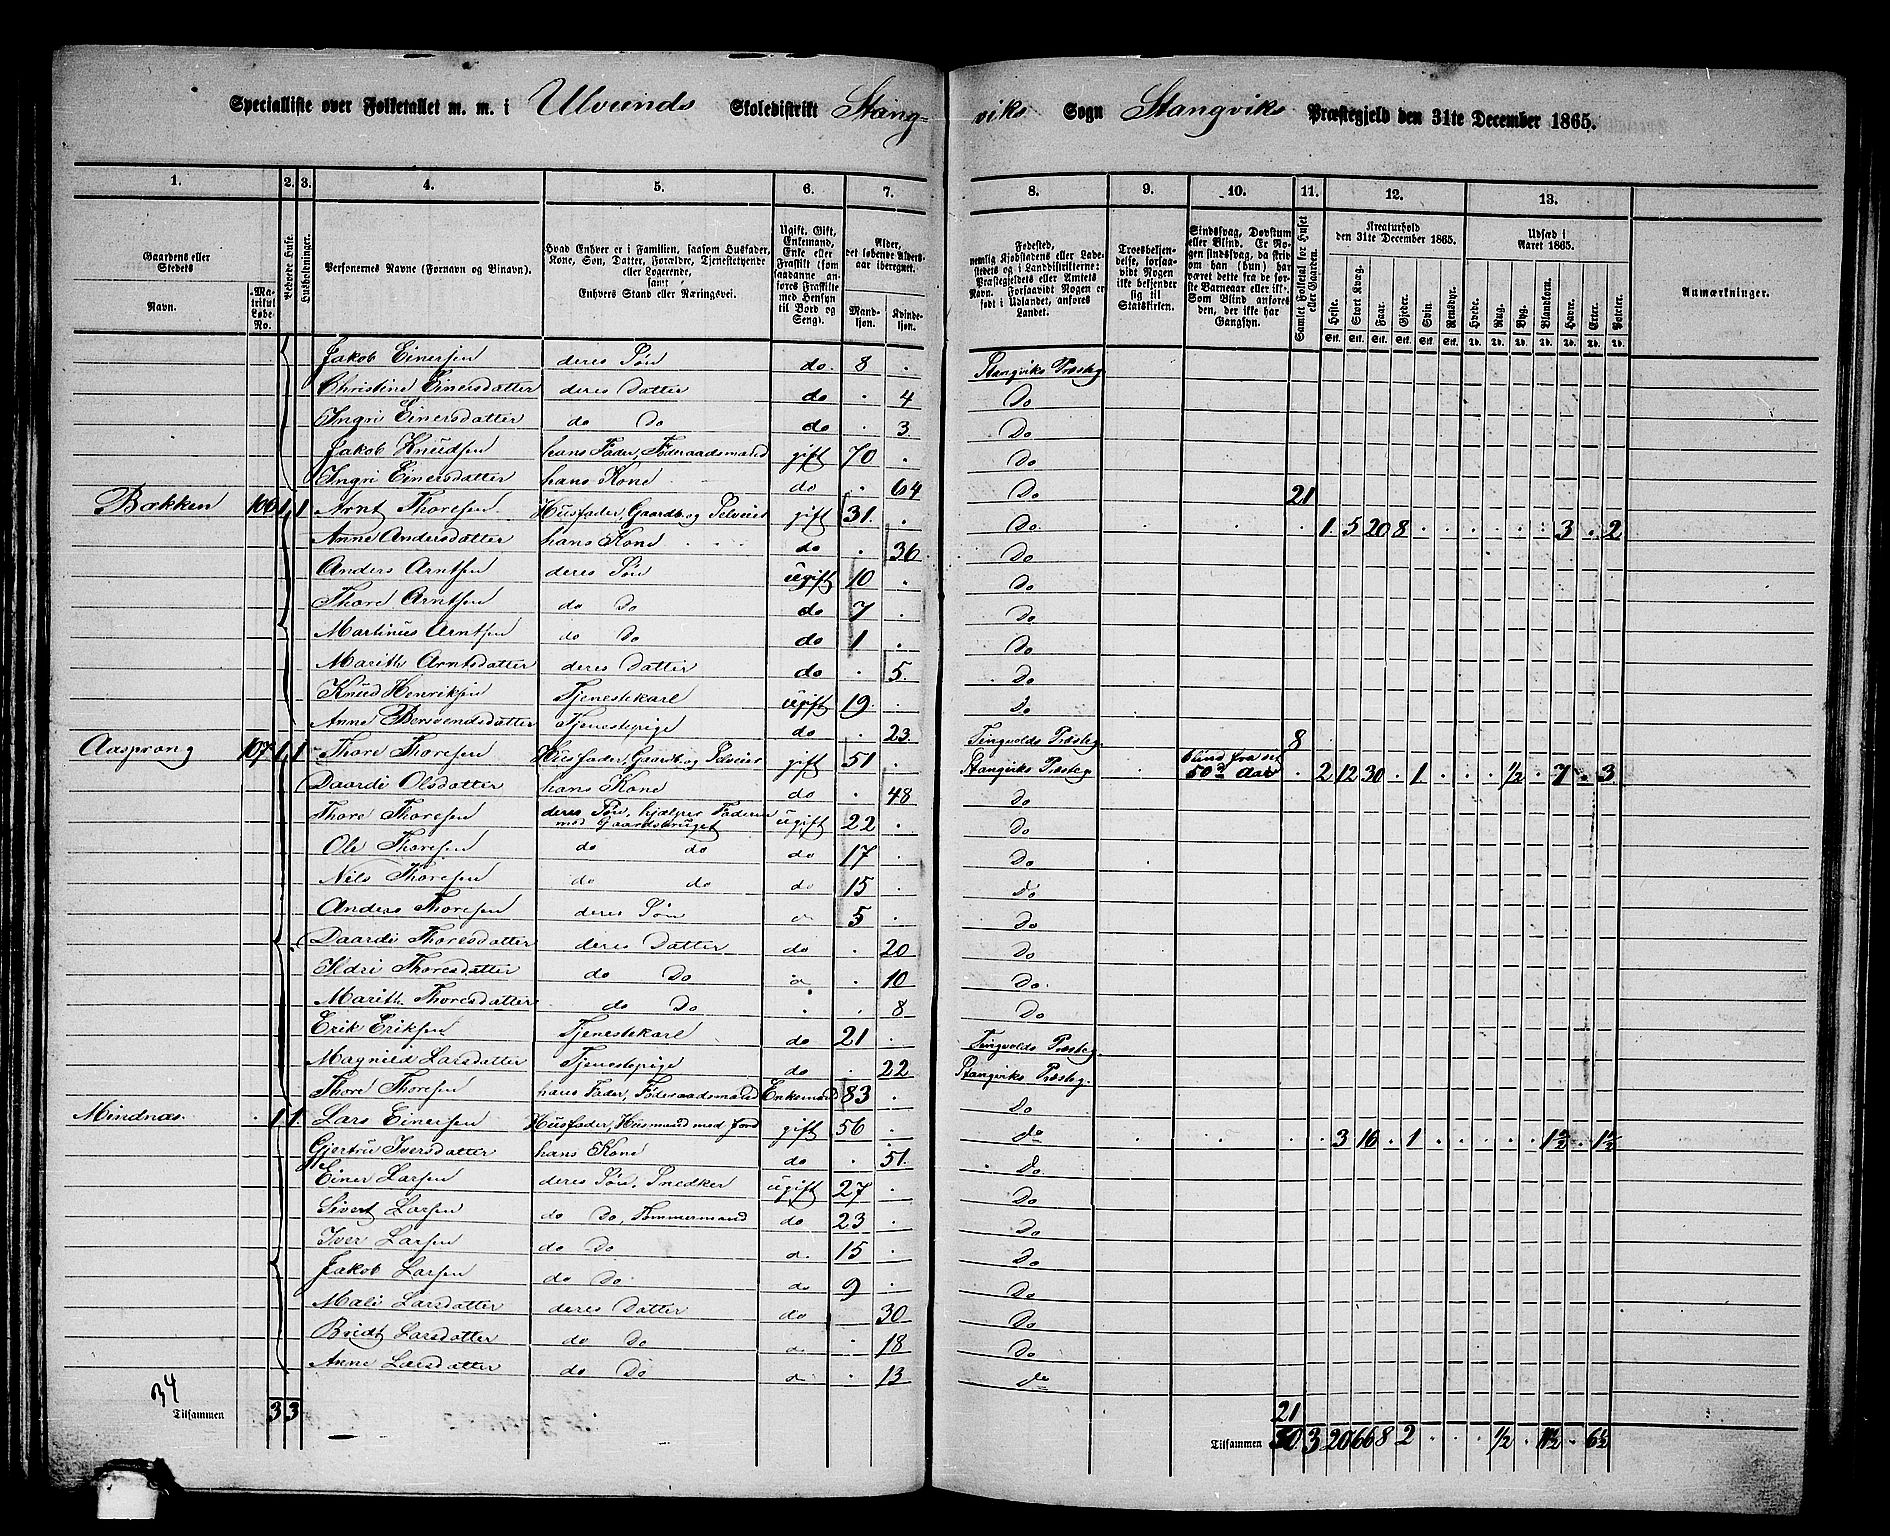 Specialliste over Folketallet m. m. i Ulvunds Skoledistrikt Stang-
viks Sogn Stangviks Præstegjeld den 31te December 1865.
1. 2. 3. 4. 5. 6. 7. 8. 9. 10. 11. 12. 13.
Gaardens eller Stedets
Navn.
Matrikul Løbe-No.
Beboede Huse.
Husholdninger.
Personernes Navne (Fornavn og Binavn).
Hvad Enhver er i Familien, saasom Husfader, Kone, Søn, Datter, Forældre, Tjenestetyende eller Logerende, samt Enhvers Stand eller Næringsvei.
Ugift, Gift, Enkemand, Enke eller Fraskilt (som saadanne anføres Fraskilte med Hensyn til Bord og Seng).
Alder, det løbende Alders-aar iberegnet.
Mandkjøn.
Kvindekjøn.
Fødested, nemlig Kjøbstadens eller Ladestedets og i Landdistrikterne: Præstegjeldets eller Amtets Navn. Forsaavidt Nogen er født i Udlandet, anføres Landet.
Troesbekjendelse, forsaavidt Nogen ikke bekjender sig til Statskirken.
Sindssvag, Døvstum eller Blind. Er Nogen sindssvag, da skriv om han (hun) har været dette fra de første Barneaar eller ikke. Som Blind anføres den, der ikke har Gangsyn.
Samlet Folketal for Huset eller Gaarden.
Kreaturhold den 31te December 1865.
Heste. Stort Kvæg. Faar. Gjeder. Svin. Rensdyr.
Udsæd i Aaret 1865.
Hvede. Rug. Byg. Blandkorn. Havre. Erter. Poteter.
Anmærkninger.
Jakob Einersen deres Søn do. 8 Stangviks Præsteg.
Christine Einersdatter deres Datter do 4 Do
Ingri Einersdatter do Do do 3 Do
Jakob Knudsen hans Fader, Føderaadsmand gift 70 Do
Ingri Einersdatter hans Kone do 64 Do 21
Bækken 106 1 1 Arnt Thoresen Husfader, Gaardb. og Selveier gift 31 Do. 1 5 20 8 3 2
Anne Andersdatter hans Kone do 36 Do
Anders Arntsen deres Søn ugift 10 Do
Thore Arntsen do Do do 7 Do
Martinus Arntsen do Do do 1 Do
Marith Arntsdatter deres Datter do 5 Do
Knud Henriksen Tjenestekarl ugift 19 Do
Anne Bersvendsdatter Tjenestepige do 23 Tingvolds Præsteg. 8
Aasprong 107 1 1 Thore Thoresen Husfader, Gaardb. og Selveier gift 51 Stangviks Præsteg. blind fra sit 50de Aar 2 12 30 1 1/2 7 3
Daardi Olsdatter hans Kone do 48 Do
Thore Thoresen deres Søn, hjælper Faderen med Gaardsbruget ugift 22 Do
Ole Thoresen do do do 17 Do
Nils Thoresen do do do 15 do
Anders Thoresen deres Søn 5 Do
Daardi Thoresdatter deres Datter do 20 Do
Ildri Thoresdatter do Do 10 Do.
Marith Thoresdatter do Do 8 Do
Erik Eriksen Tjenestekarl do 21 Tingvolds Præsteg.
Magnild Larsdatter Tjenestepige do 22 Stangviks Præsteg.
Thore Thoresen hans Fader, Føderaadsmand Enkemand 83 Do
Mindnæs. 1 1 Lars Einersen Husfader, Husmand med Jord gift 56 do 3 16 1 1 1/2 1 1/2
Gjertru Iversdatter hans Kone do 51 Do
Einer Larsen deres Søn, Snedker ugift 27 Do
Sivert Larsen do Do, Tømmermand do 23 Do
Iver Larsen do Do 15 Do
Jakob Larsen do Do do 9 Do
Mali Larsdatter deres Datter do 30 Do
Bridt Larsdatter do Do 18 Do
Anne Larsdatter do Do 13 do
34
Tilsammen 3 3
21
Tilsammen 30 3 20 66 8 2 1/2 11 1/2 6 1/2